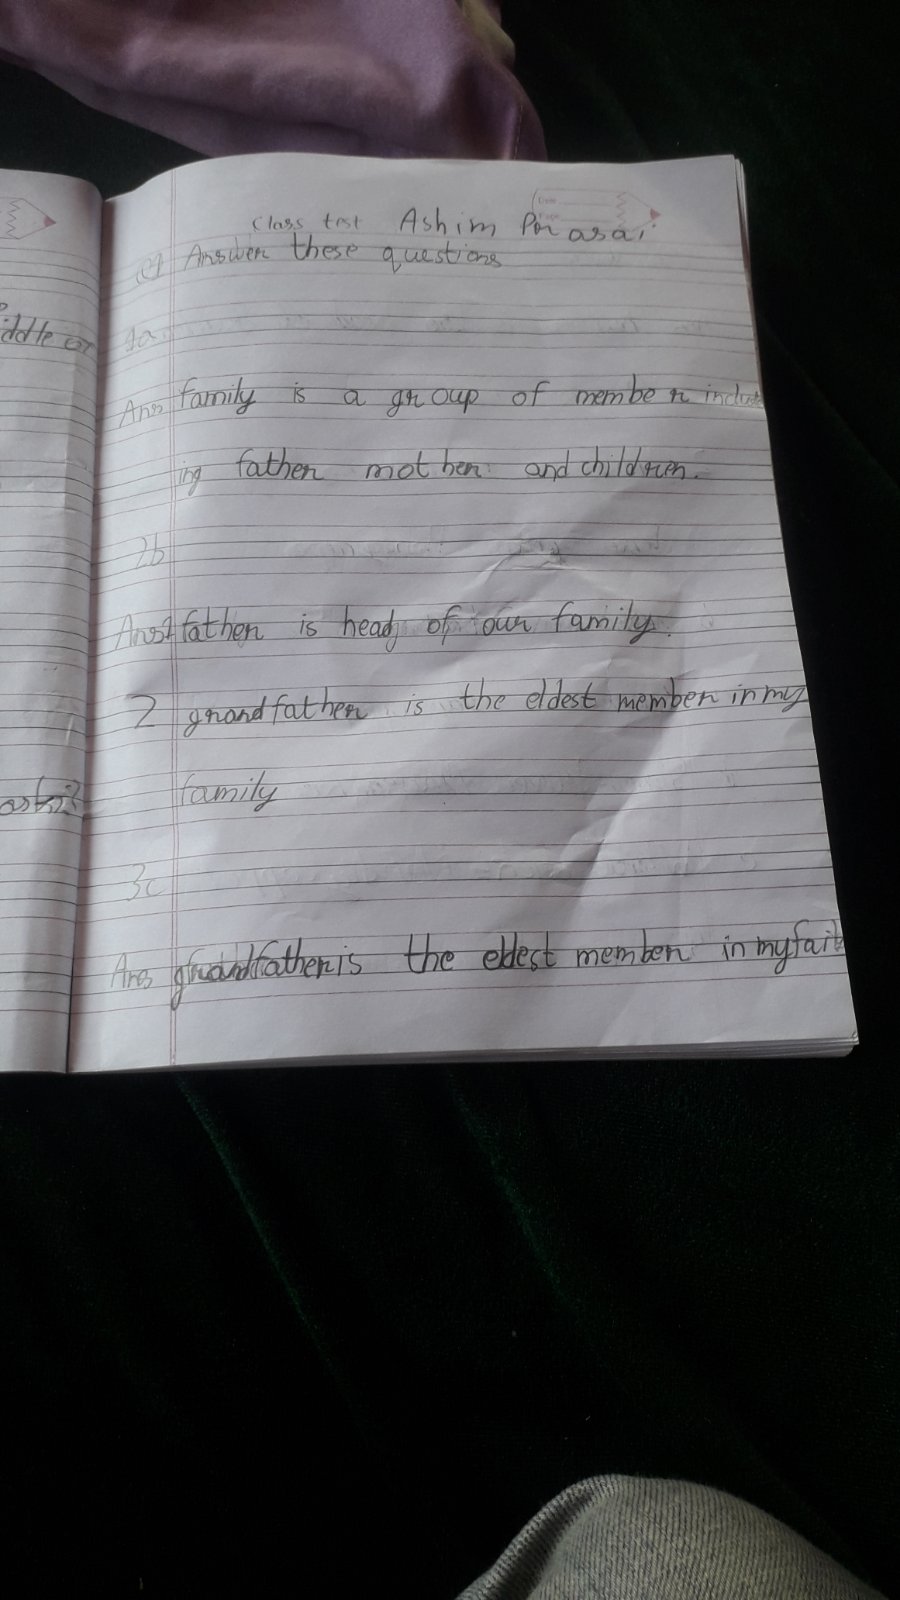 Class test Ashim Parasai
Answer these questions
1a
Ans family is a group of member includ
ing father mother and children.
2b
Ans1 father is head of our family.
2 grandfather is the eldest member in my
family
3c
Ans grandfather is the eldest member in my
iddle or